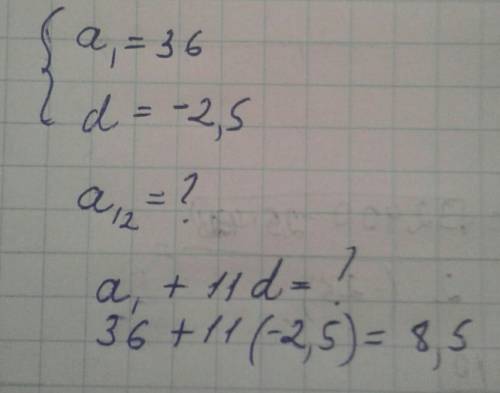 a₁ = 36
d = -2,5
a₁₂ = ?
a₁ + 11d = ?
36 + 11(-2,5) = 8,5